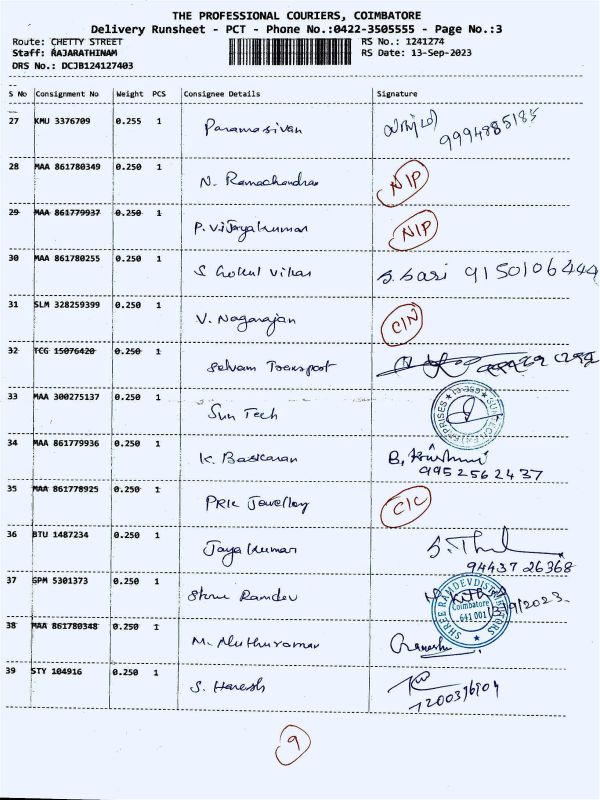 THE PROFESSIONAL COURIERS, COIMBATORE
Delivery Runsheet - PCT - Phone No.:0422-3505555 - Page No.:3
Route: CHETTY STREET RS No.: 1241274
Staff: RAJARATHINAM RS Date: 13-Sep-2023
DRS No.: DCJB124127403
S No Consignment No Weight PCS Consignee Details Signature
27 KMU 3376709 0.255 1 Paramasivan
9994885185
28 MAA 861780349 0.250 1 N. Ramachandran NIP
29 MAA 861779937 0.250 1 P. Vijayakumar NIP
30 MAA 861780255 0.250 1 S Gokul Vikas S. Sasi 9150106444
31 SLM 328259399 0.250 1 V. Nagarajan C/N
32 TCG 15076420 0.250 1 Selvam Transport
33 MAA 300275137 0.250 1 Sun Tech
34 MAA 861779936 0.250 1 K. Baskaran B,
9952562437
35 MAA 861778925 0.250 1 PRK Jewellery C/C
36 BTU 1487234 0.250 1 Jaya Kumar
94437 26368
37 GPM 5301373 0.250 1 Shree Ramdev
SHREE RAMDEV DISTRIBUTORS
Coimbatore
641 001
38 MAA 861780348 0.250 1 M. Muthuraman
39 STY 104916 0.250 1 S. Haresh
9